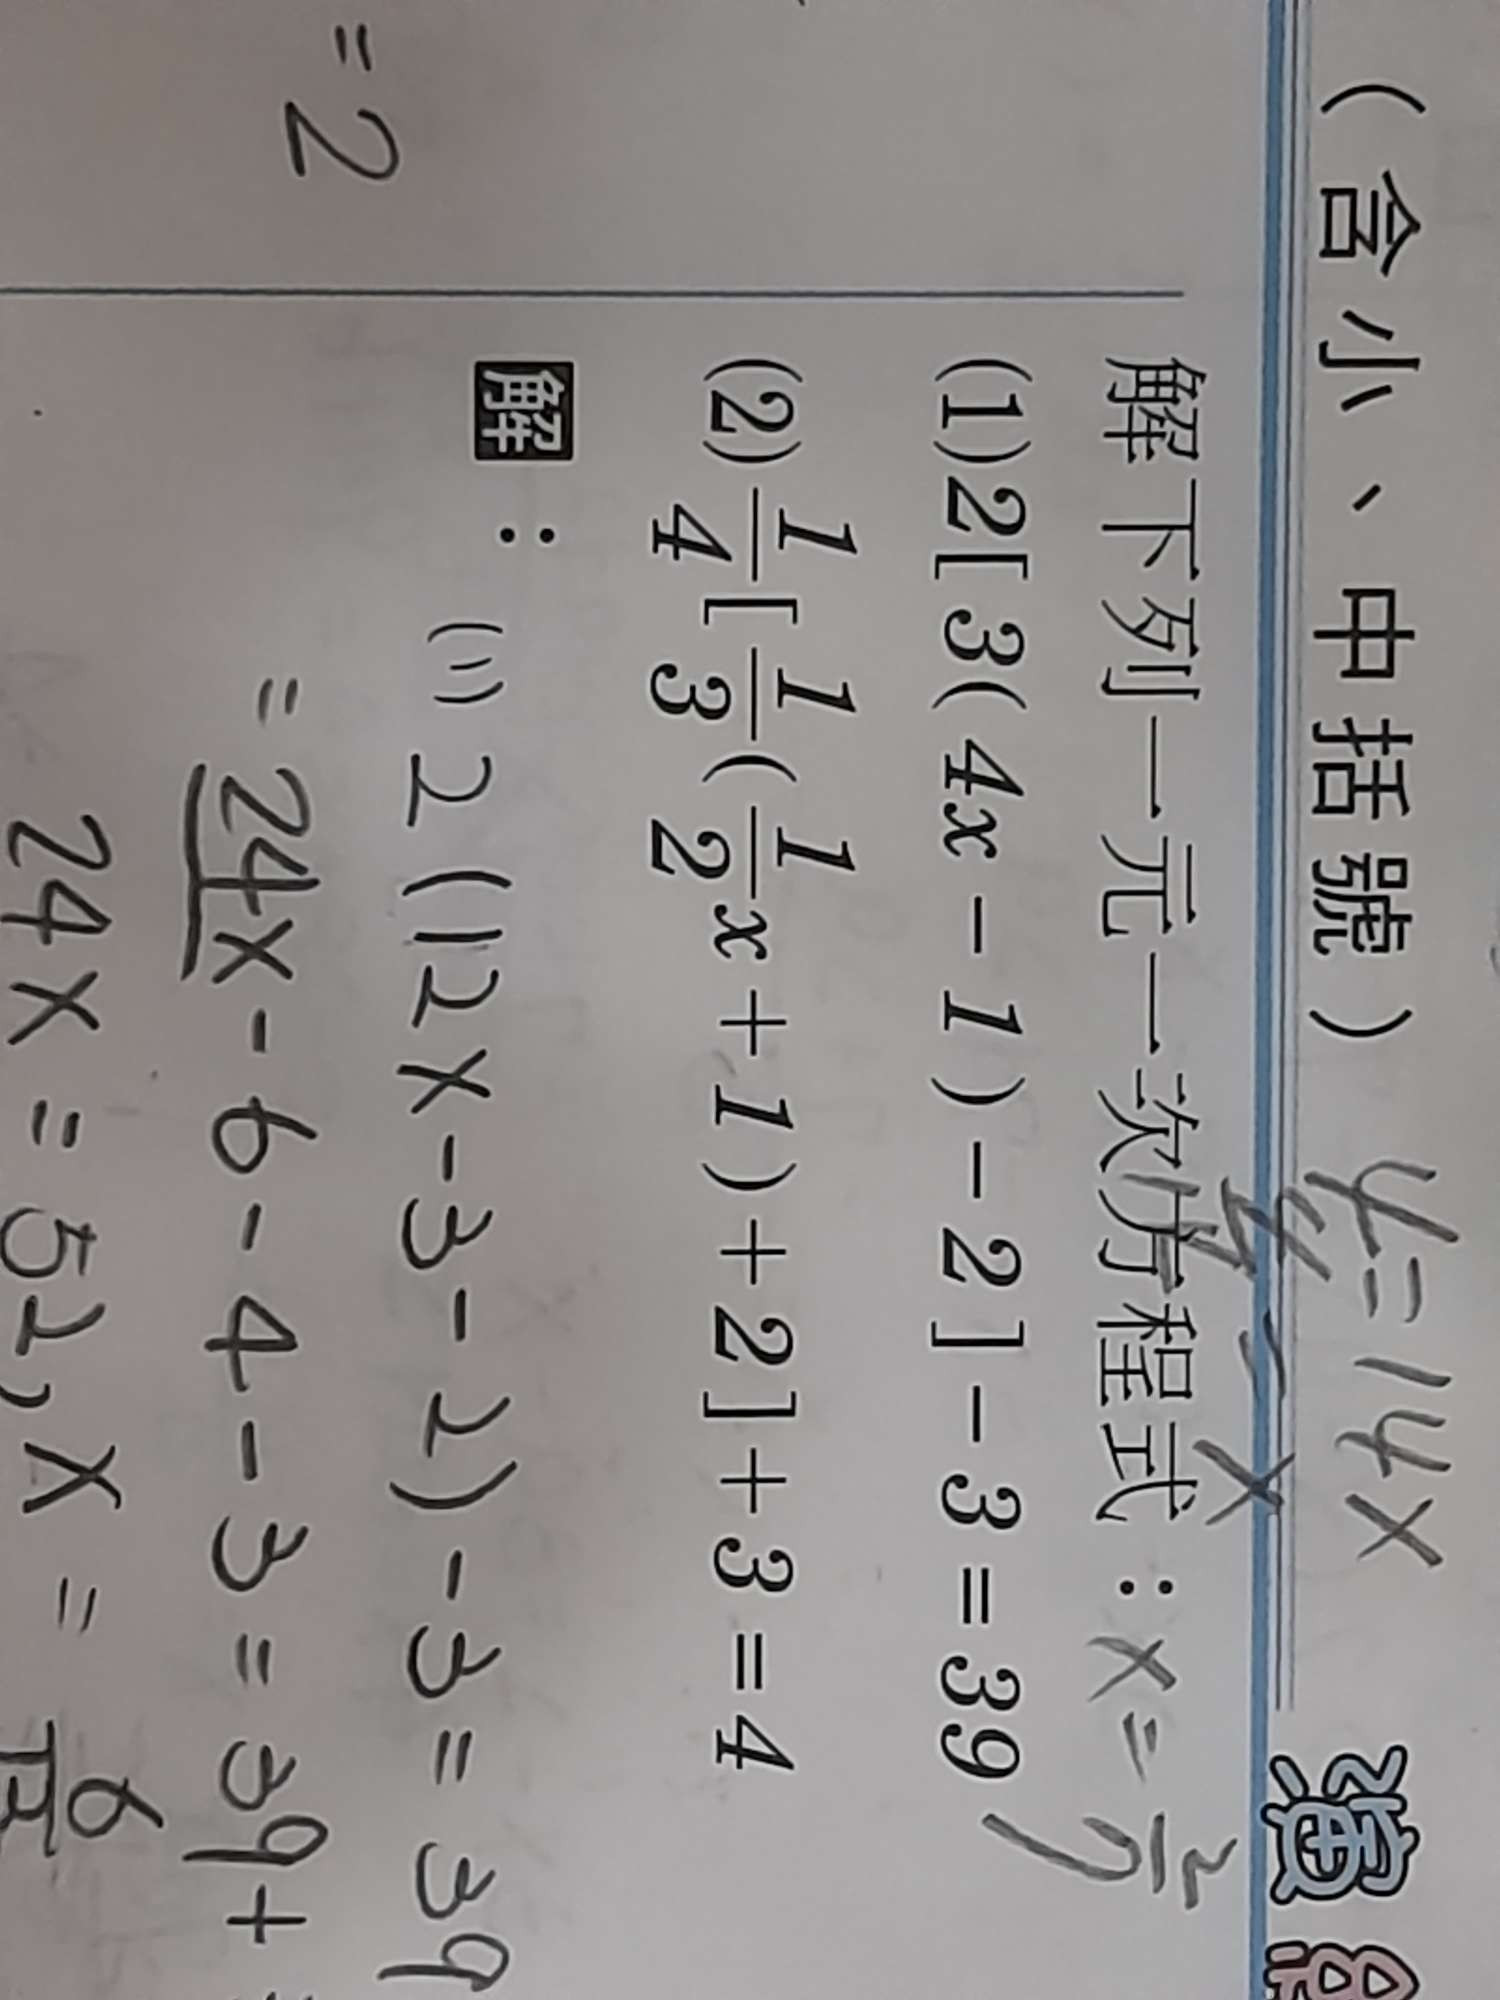 (含小、中括號) y=14x 演
解下列一元一次方程式：x=
(1)2[3(4x-1)-2]-3=39
(2)1/4[1/3(1/2x+1)+2]+3=4
解：(1) 2(12x-3-2)-3=39
=2
=24x-6-4-3=39+
24x=52,x=